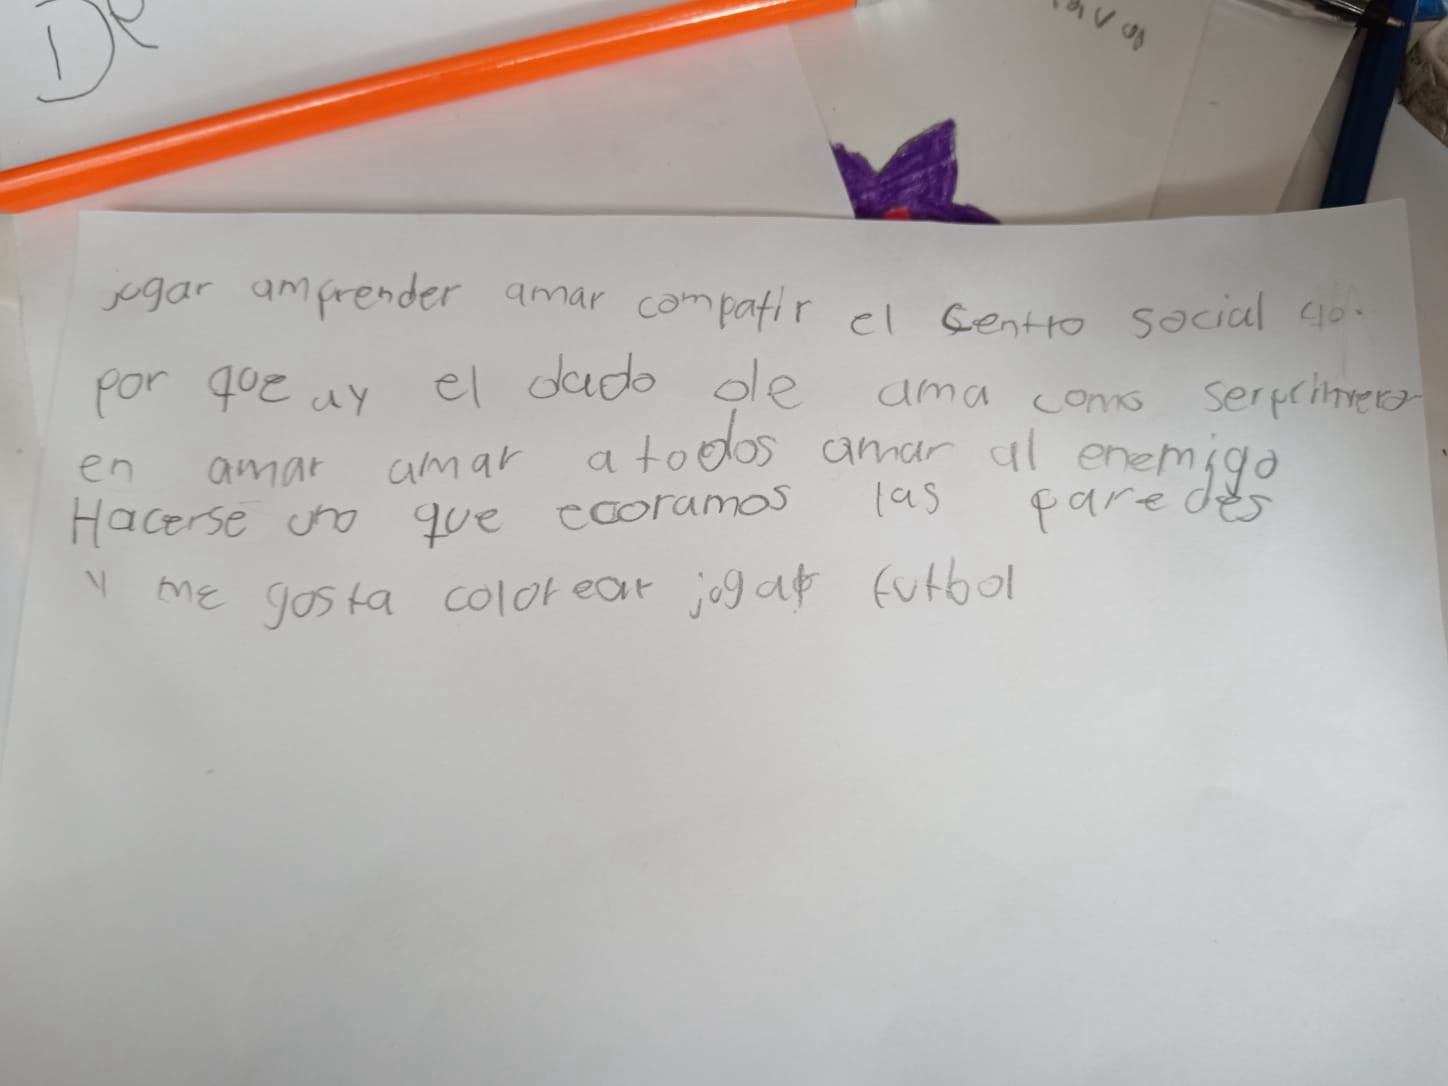 De
jugar amprender amar compatir el sentro social
por que ay el dado de ama como serprimero
en amar amar a todos amar al enemigo
Hacerse uno que ecoramos las paredes
y me gosta colorear jogar futbol